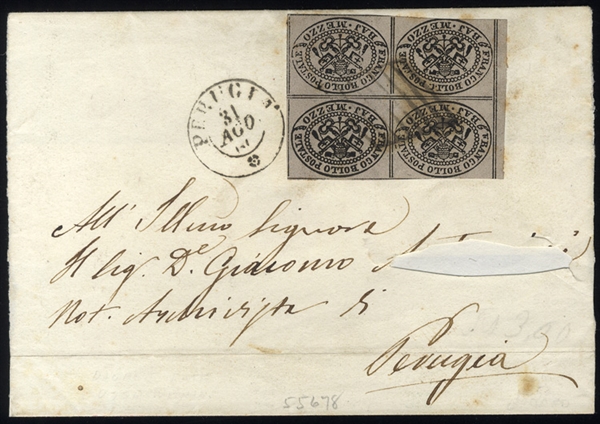 FRANCO BOLLO POSTALE BAJ MEZZO
FRANCO BOLLO POSTALE BAJ MEZZO
FRANCO BOLLO POSTALE BAJ MEZZO
FRANCO BOLLO POSTALE BAJ MEZZO
PERUGIA
31
AGO
All' Illmo Signore
Il Sig. Dr. Giacomo
Not. Archivista di
Perugia
55678